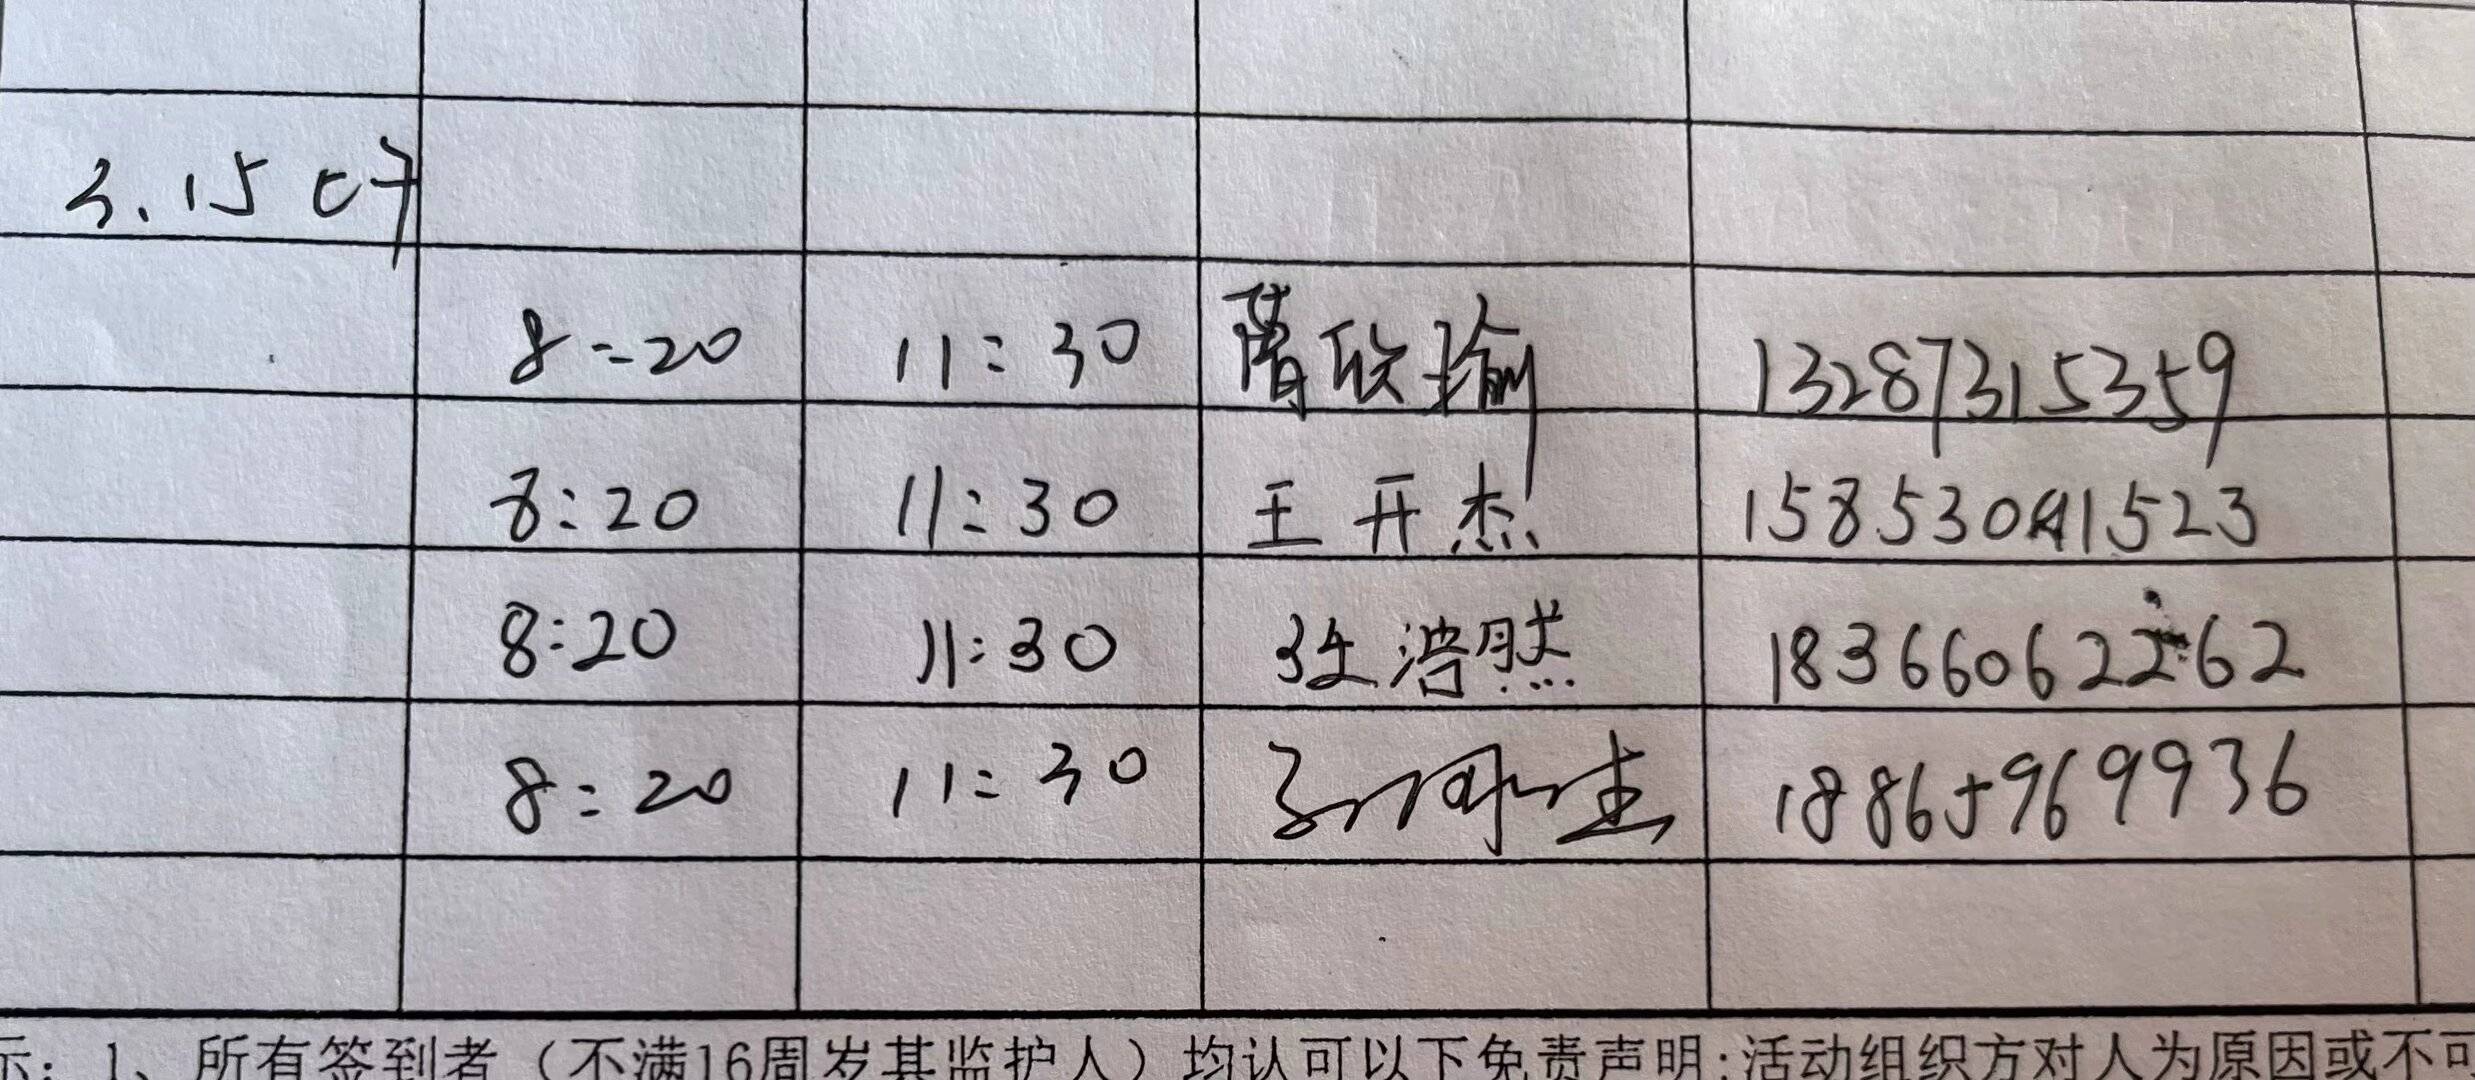 3.15 上午
8:20 11:30 蔺欣瑜 13287315359
8:20 11:30 王开杰 15853041523
8:20 11:30 张浩然 18366062262
8:20 11:30 18865969936
示：1、所有签到者（不满16周岁其监护人）均认可以下免责声明:活动组织方对人为原因或不可